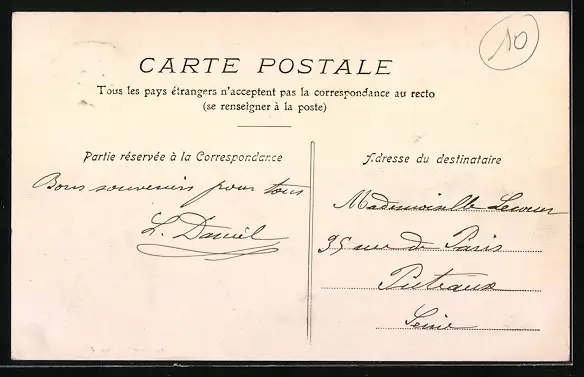 10
CARTE POSTALE
Tous les pays étrangers n'acceptent pas la correspondance au recto
(se renseigner à la poste)
Partie réservée à la Correspondance
Bons souvenirs pour tous
L. Daniel
Adresse du destinataire
Mademoiselle Lecoeur
35 rue de Paris
Puteaux
Seine